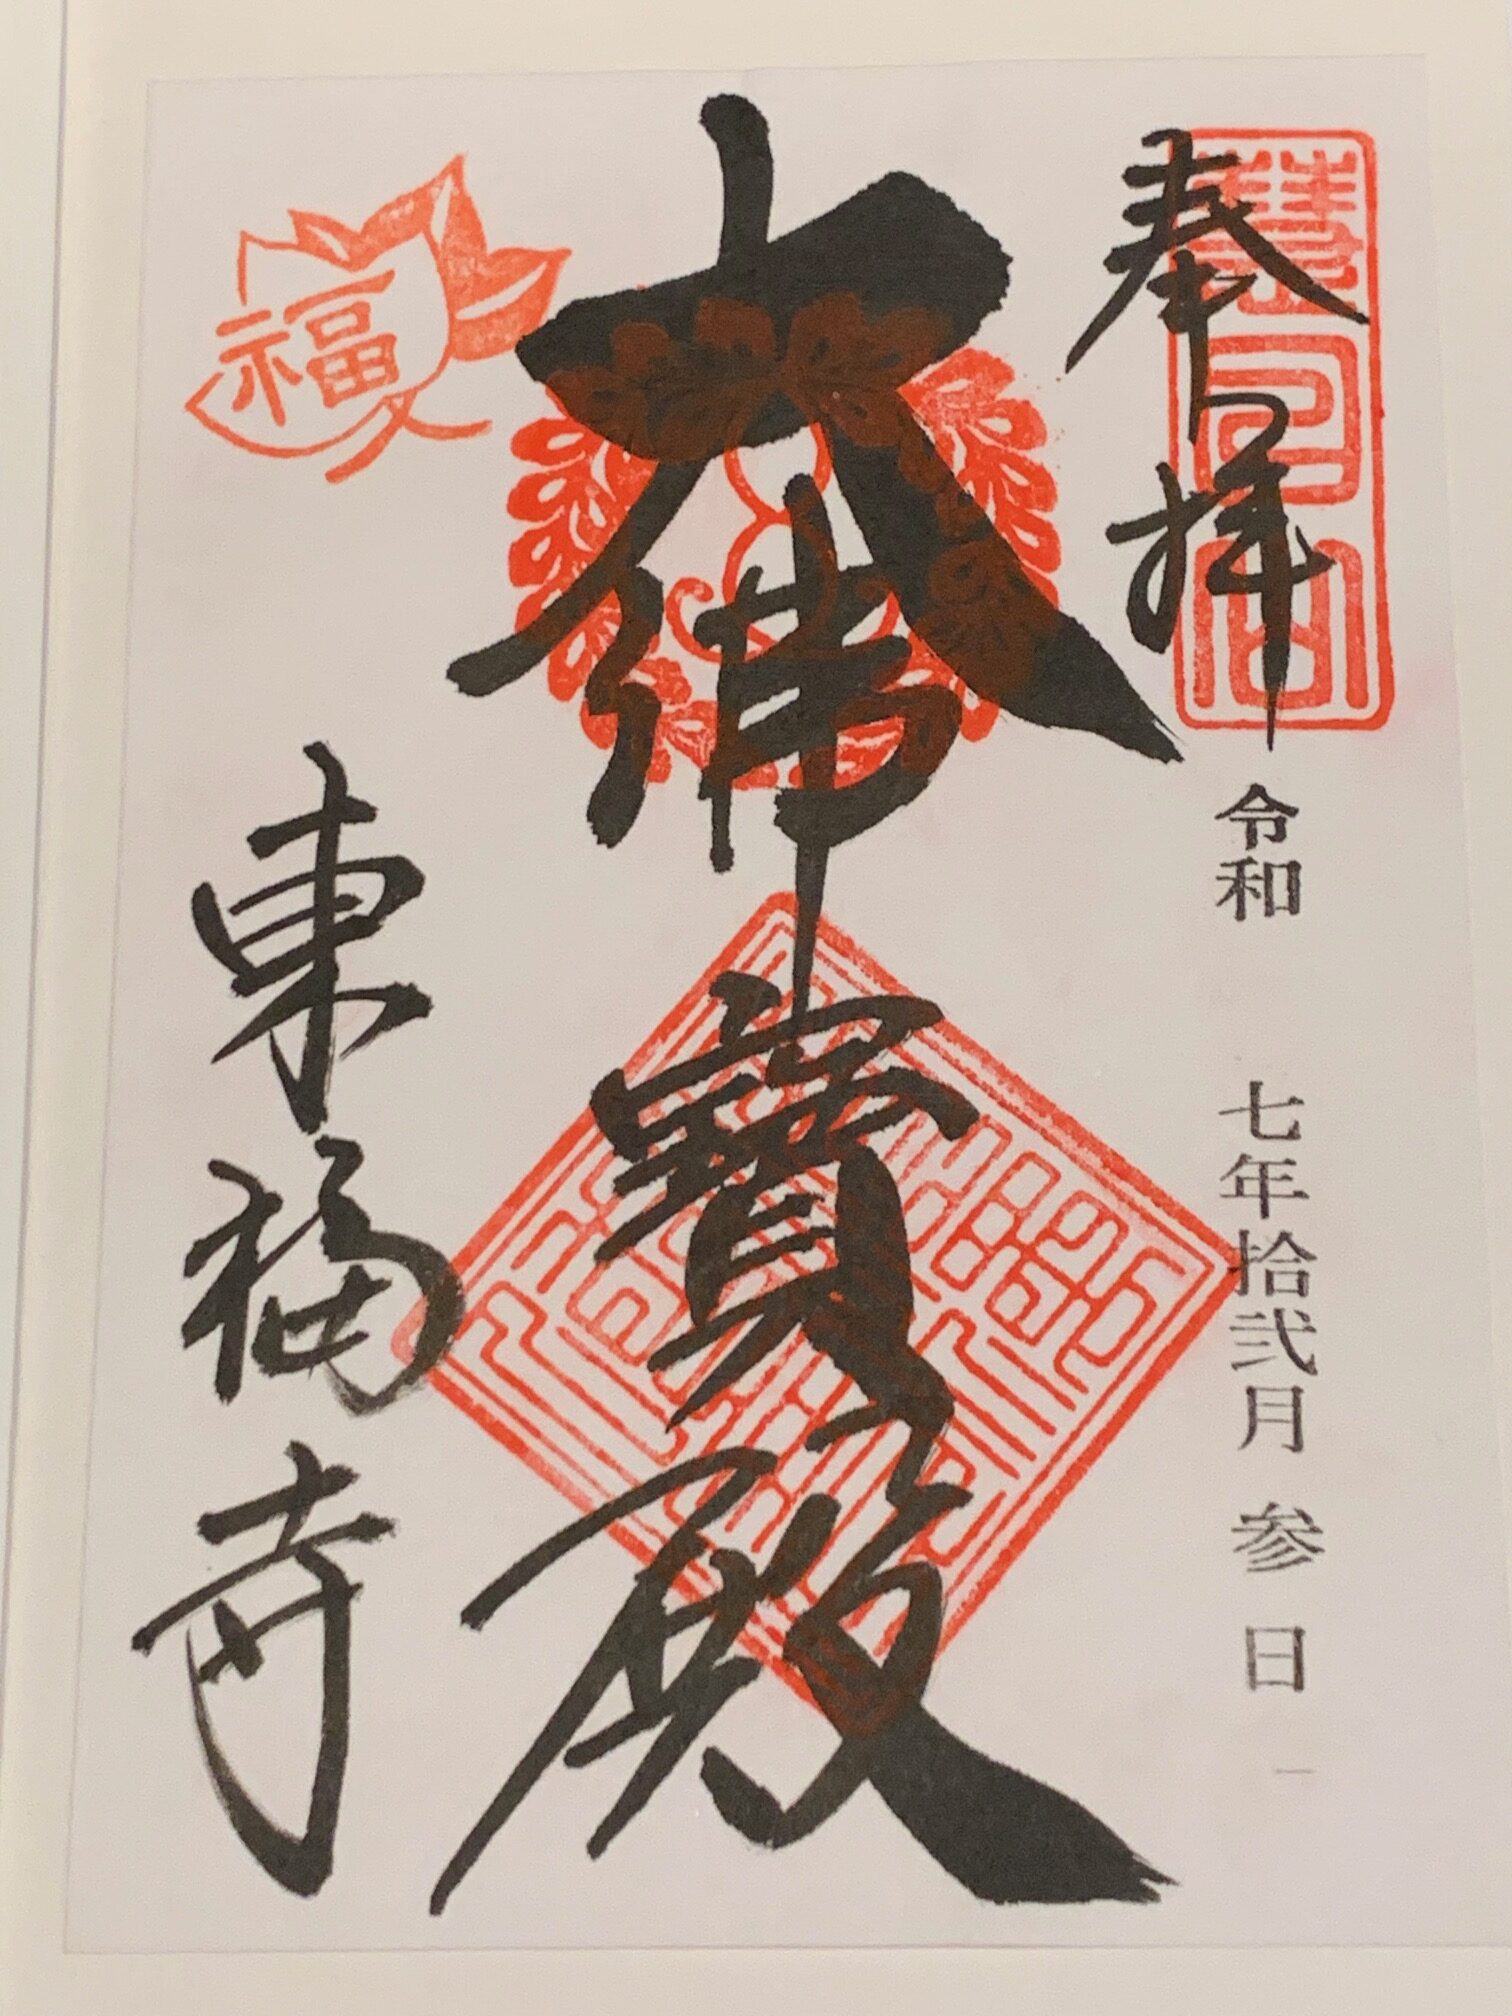 奉拝
慧日山
令和 七年拾弐月 参 日
大佛寶殿
福
東福寺